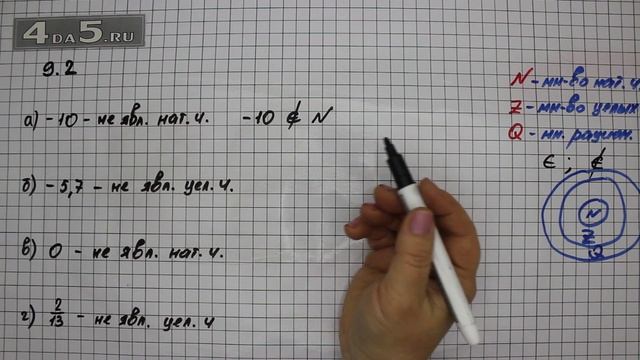 4DA5.RU
9.2
а) -10 - не явл. нат. ч. -10 ∉ N
б) -5,7 - не явл. цел. ч.
в) 0 - не явл. нат. ч.
г) 2/13 - не явл. цел. ч
N - мн-во нат. ч.
Z - мн-во целых
Q - мн. рацион.
∈ ; ∉
N
Z
Q